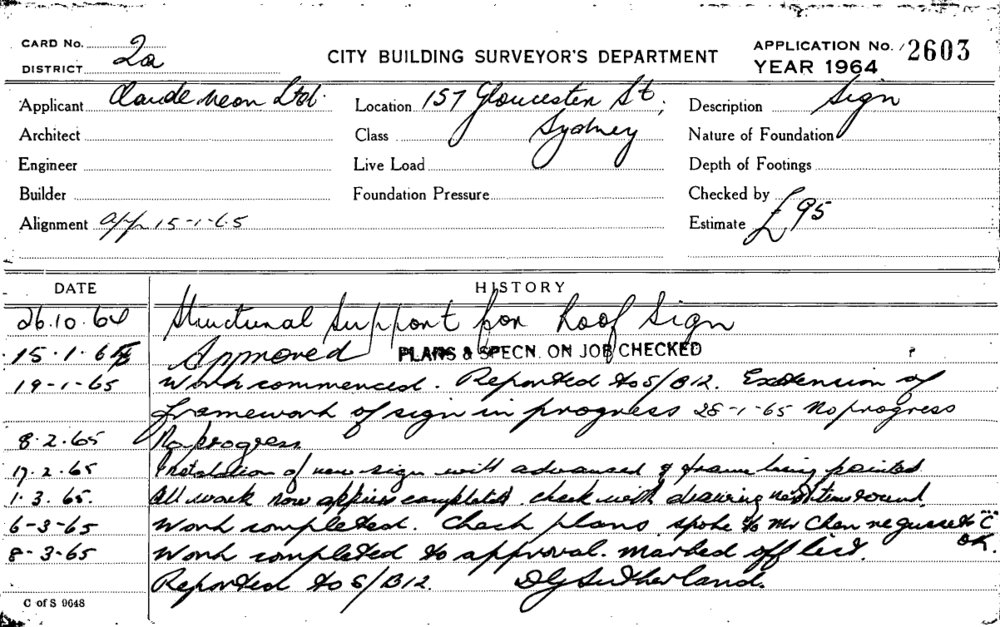 CARD No. 2a
DISTRICT
CITY BUILDING SURVEYOR'S DEPARTMENT
APPLICATION No. 12603
YEAR 1964
Applicant Claude Neon Ltd. Location 157 Gloucester St, Description Sign
Architect Class Sydney Nature of Foundation
Engineer Live Load Depth of Footings
Builder Foundation Pressure Checked by
Alignment app 15-1-65 Estimate £95
DATE HISTORY
26.10.64 Structural Support for Roof Sign
15.1.65 Approved PLANS & SPECN. ON JOB CHECKED
19-1-65 Work commenced. Reported to S/B12. Extension of
framework of sign in progress 25-1-65 No progress
8.2.65 No progress
17.2.65 Instalation of new sign well advanced & frame being painted
1.3.65. All work now appears completed check with drawing next time round
6-3-65 Work completed. Check plans spoke to Mr Chen re gusset "C" ok.
8-3-65 Work completed to approval. marked off list.
Reported to S/B12. DG Sutherland.
C of S 9648